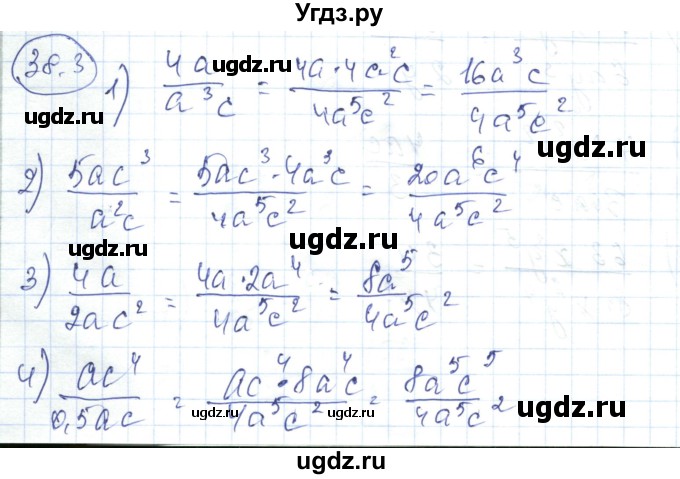 Угдз.ру
38.3
1) 4a/a³c = 4a·4a²c/4a⁵c² = 16a³c/4a⁵c²
ugdz.ru ugdz.ru ugdz.ru
2) 5ac³/a²c = 5ac³·4a³c/4a⁵c² = 20a⁶c⁴/4a⁵c²
ugdz.ru ugdz.ru
3) 4a/2ac² = 4a·2a⁴/4a⁵c² = 8a⁵/4a⁵c²
ugdz.ru ugdz.ru ugdz.ru
4) ac⁴/0,5ac = ac⁴·8a⁴c/4a⁵c² = 8a⁵c⁵/4a⁵c²
ugdz.ru ugdz.ru ugdz.ru
ugdz.ru